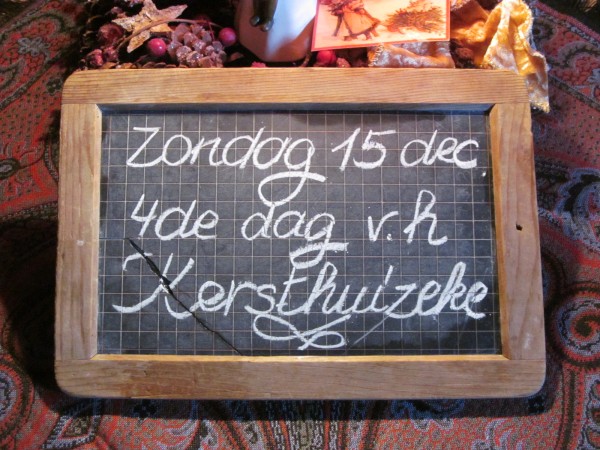 Zondag 15 dec.
4de dag v.h
Kersthuizeke